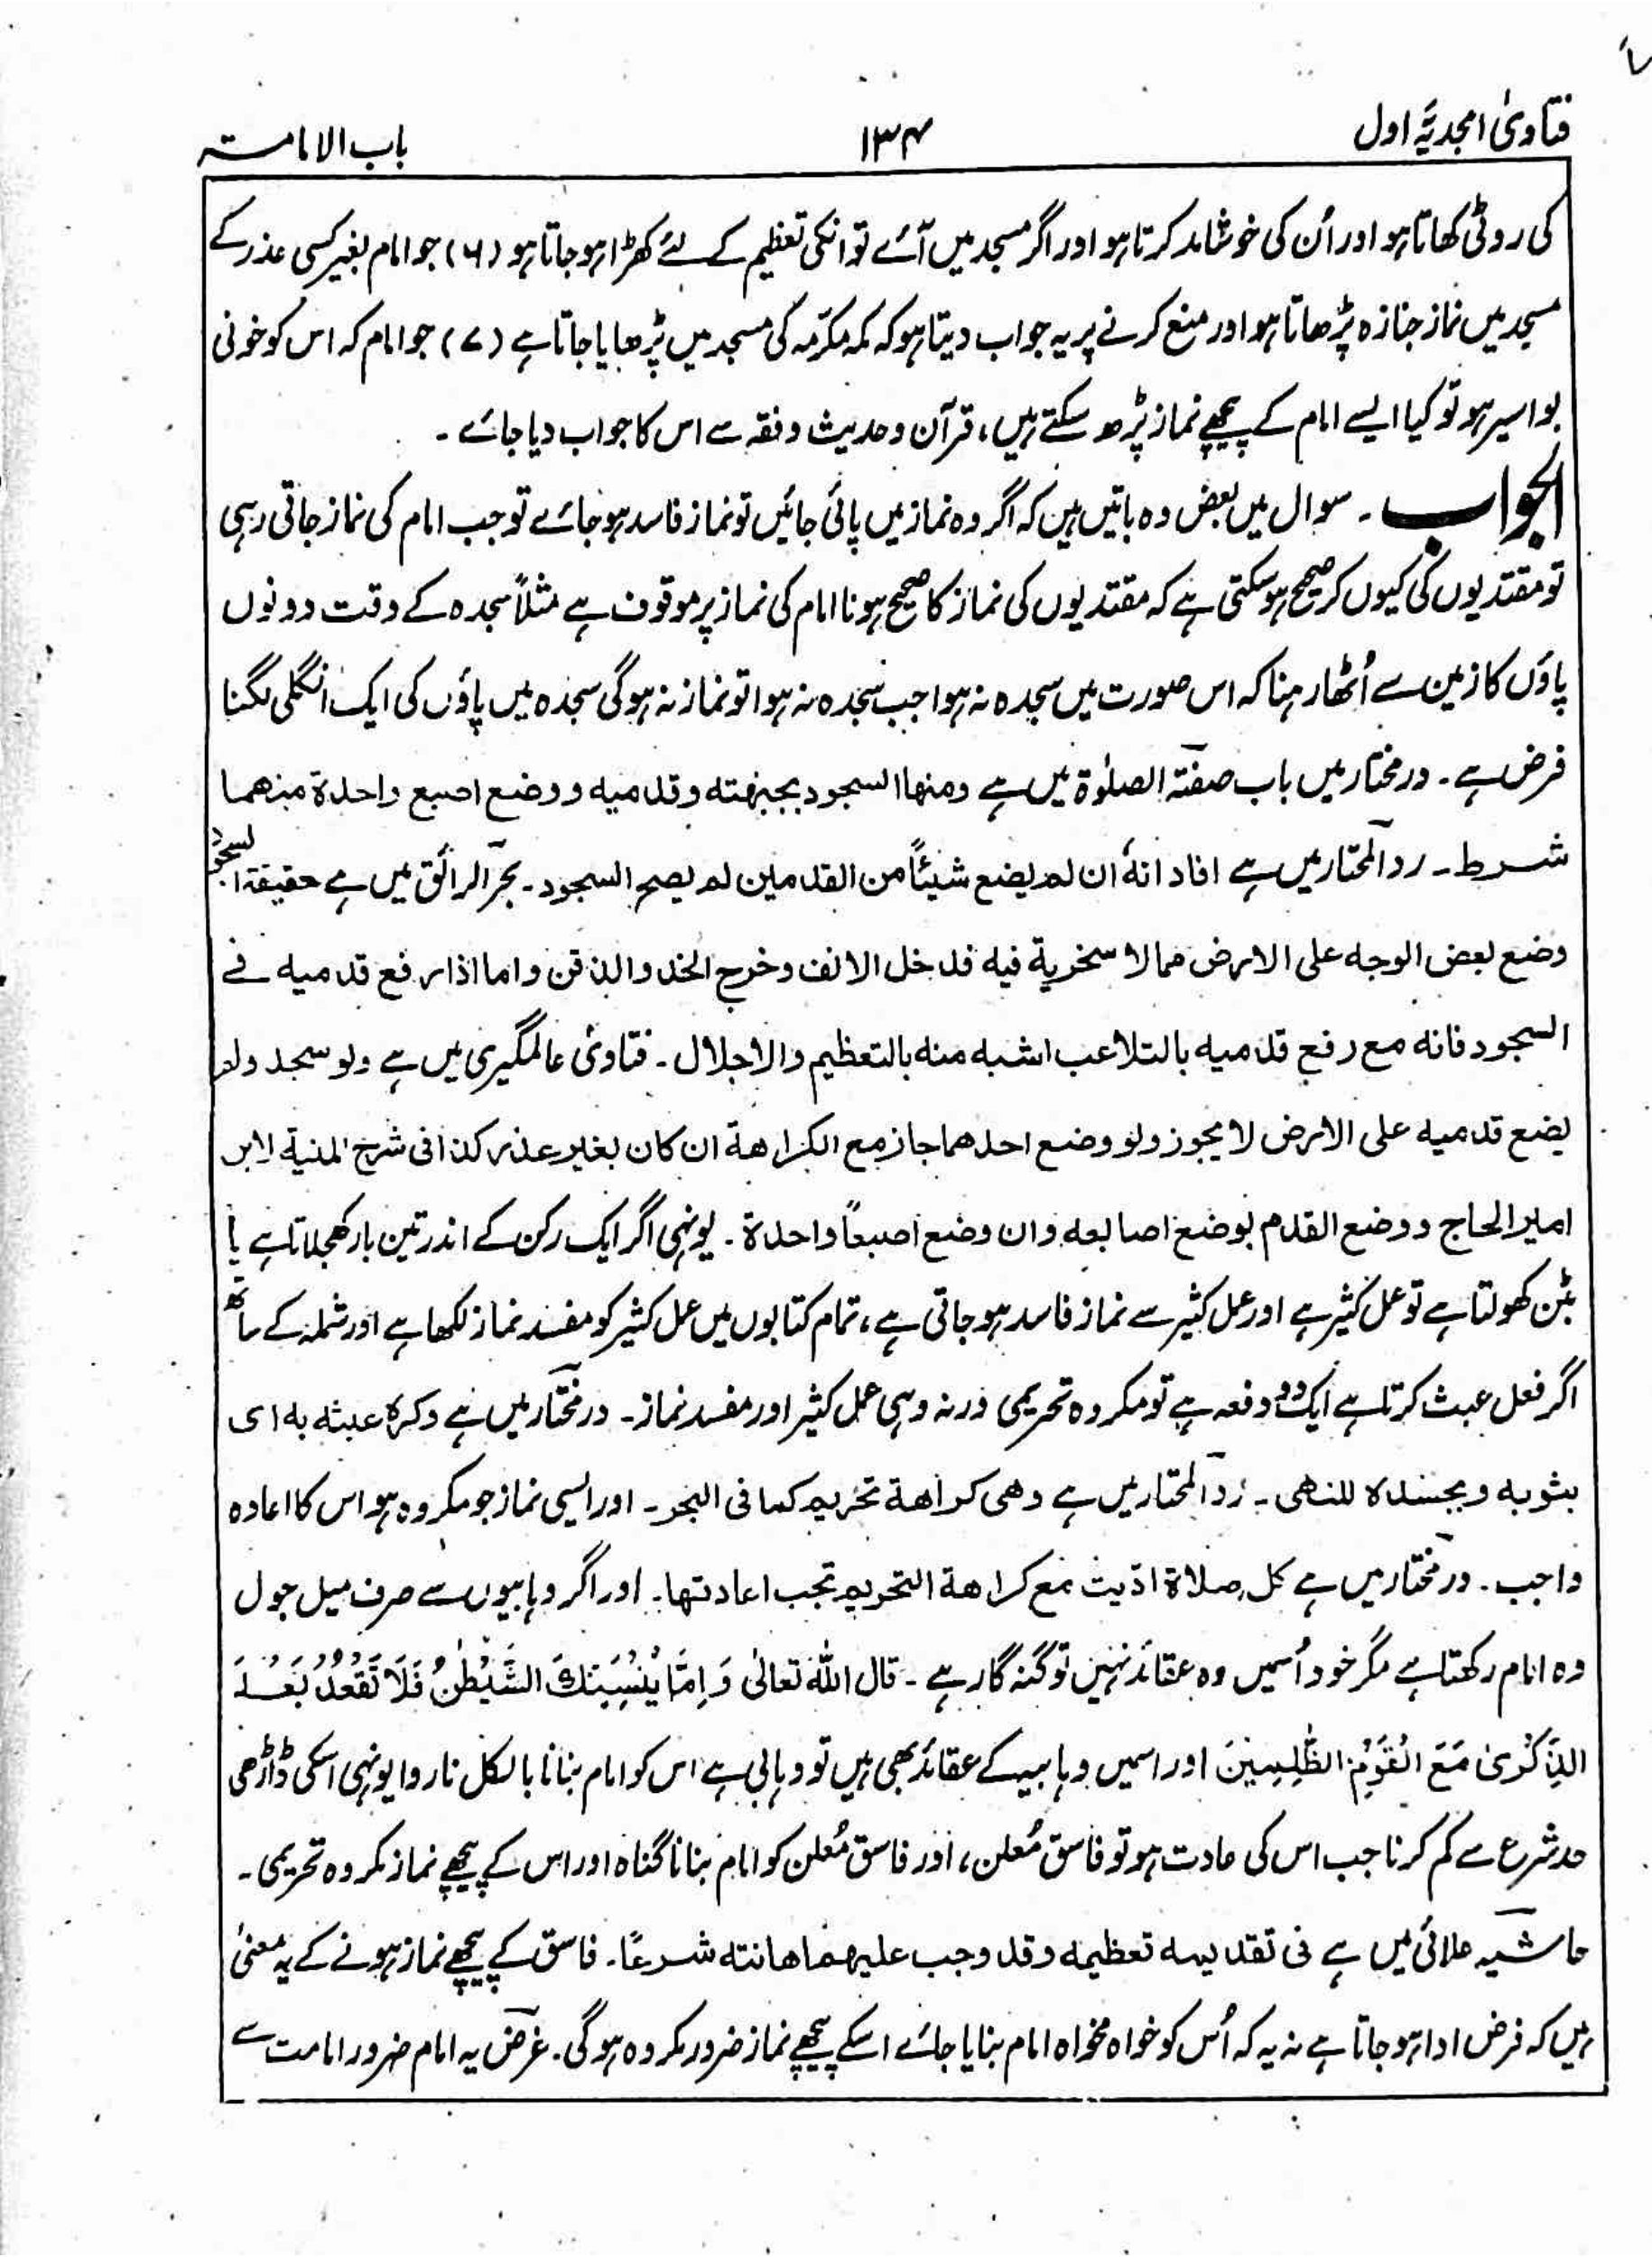 فتاویٰ امجدیہ اول
۱۳۴
باب الامامت
کی روٹی کھاتا ہو اور اُن کی خوشامد کرتا ہو اور اگر مسجد میں آئے تو انکی تعظیم کے لئے کھڑا ہو جاتا ہو (۶) جو امام بغیر کسی عذر کے
مسجد میں نماز جنازہ پڑھاتا ہو اور منع کرنے پر یہ جواب دیتا ہو کہ مکہ مکرّمہ کی مسجد میں پڑھایا جاتا ہے (۷) جو امام کہ اس کو خونی
بواسیر ہو تو کیا ایسے امام کے پیچھے نماز پڑھ سکتے ہیں، قرآن و حدیث و فقہ سے اس کا جواب دیا جائے ۔
الجواب ۔ سوال میں بعض وہ باتیں ہیں کہ اگر وہ نماز میں پائی جائیں تو نماز فاسد ہو جائے تو جب امام کی نماز جاتی رہی
تو مقتدیوں کی کیوں کر صحیح ہو سکتی ہے کہ مقتدیوں کی نماز کا صحیح ہونا امام کی نماز پر موقوف ہے مثلاً سجدہ کے وقت دونوں
پاؤں کا زمین سے اُٹھا رہنا کہ اس صورت میں سجدہ نہ ہوا جب سجدہ نہ ہوا تو نماز نہ ہوگی سجدہ میں پاؤں کی ایک انگلی لگنا
فرض ہے ۔ درمختار میں باب صفۃ الصلوٰۃ میں ہے ومنها السجود بجبهته وقدميه ووضع اصبع واحدة منهما
شرط ۔ ردالمحتار میں ہے افاد انهٗ ان لم يضع شيئاً من القدمين لم يصح السجود ۔ بحر الرائق میں ہے حقيقة السجود
وضع بعض الوجه على الارض مما لا سخرية فيه فدخل الانف وخرج الخد والذقن واما اذا رفع قدميه فے
السجود فانه مع رفع قدميه بالتلاعب اشبه منه بالتعظيم والاجلال ۔ فتاویٰ عالمگیری میں ہے ولو سجد ولم
يضع قدميه على الارض لا يجوز ولو وضع احدهما جاز مع الكراهة ان كان بغير عذر كذا فى شرح المنية لابن
امير الحاج ووضع القدم بوضع اصابعه وان وضع اصبعاً واحدة ۔ یونہی اگر ایک رکن کے اندر تین بار کھجلاتا ہے یا
بٹن کھولتا ہے تو عمل کثیر ہے اور عمل کثیر سے نماز فاسد ہو جاتی ہے، تمام کتابوں میں عمل کثیر کو مفسد نماز لکھا ہے اور شملہ کے ساتھ
اگر فعل عبث کرتا ہے ایک دو دفعہ ہے تو مکروہ تحریمی ورنہ وہی عمل کثیر اور مفسد نماز ۔ درمختار میں ہے وكره عبثه به اى
بثوبه وبجسده للنهى ۔ ردالمحتار میں ہے وهى كراهة تحريم كما فى البحر ۔ اور ایسی نماز جو مکروہ ہو اس کا اعادہ
واجب ۔ درمختار میں ہے كل صلاة اديت مع كراهة التحريم تجب اعادتها ۔ اور اگر وہابیوں سے صرف میل جول
وہ امام رکھتا ہے مگر خود اُسمیں وہ عقائد نہیں تو گنہ گار ہے ۔ قال اللہ تعالیٰ وَ اِمَّا یُنْسِیَنَّكَ الشَّیْطٰنُ فَلَا تَقْعُدْ بَعْدَ
الذِّکْرٰی مَعَ الْقَوْمِ الظّٰلِمِیْنَ اور اسمیں وہابیہ کے عقائد بھی ہیں تو وہابی ہے اس کو امام بنانا بالکل ناروا یونہی اسکی ڈاڑھی
حد شرع سے کم کرنا جب اس کی عادت ہو تو فاسق مُعلن، اور فاسق مُعلن کو امام بنانا گناہ اور اس کے پیچھے نماز مکروہ تحریمی ۔
حاشیہ علائی میں ہے فى تقديمه تعظيمه وقد وجب عليهم اهانته شرعًا ۔ فاسق کے پیچھے نماز ہونے کے یہ معنیٰ
ہیں کہ فرض ادا ہو جاتا ہے نہ یہ کہ اُس کو خواہ مخواہ امام بنایا جائے اسکے پیچھے نماز ضرور مکروہ ہوگی ۔ غرض یہ امام ضرور امامت سے